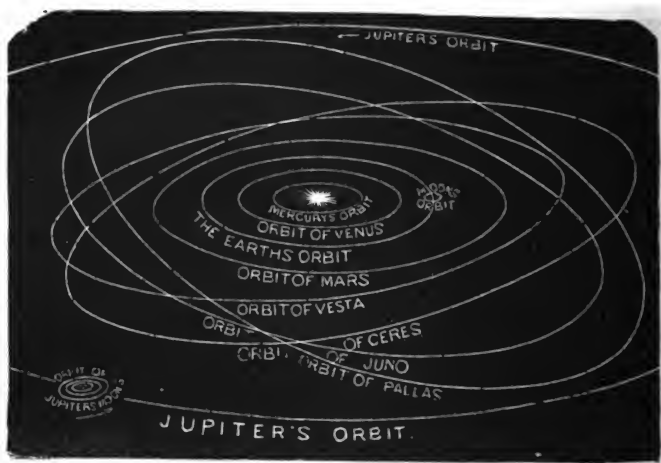 ← JUPITERS ORBIT
MOONS
ORBIT
MERCURYS ORBIT
ORBIT OF VENUS
THE EARTHS ORBIT
ORBIT OF MARS
ORBIT OF VESTA
ORBI OF CERES
ORBI OF JUNO
ORBIT OF PALLAS
ORBIT OF
JUPITERS MOONS
JUPITER'S ORBIT.